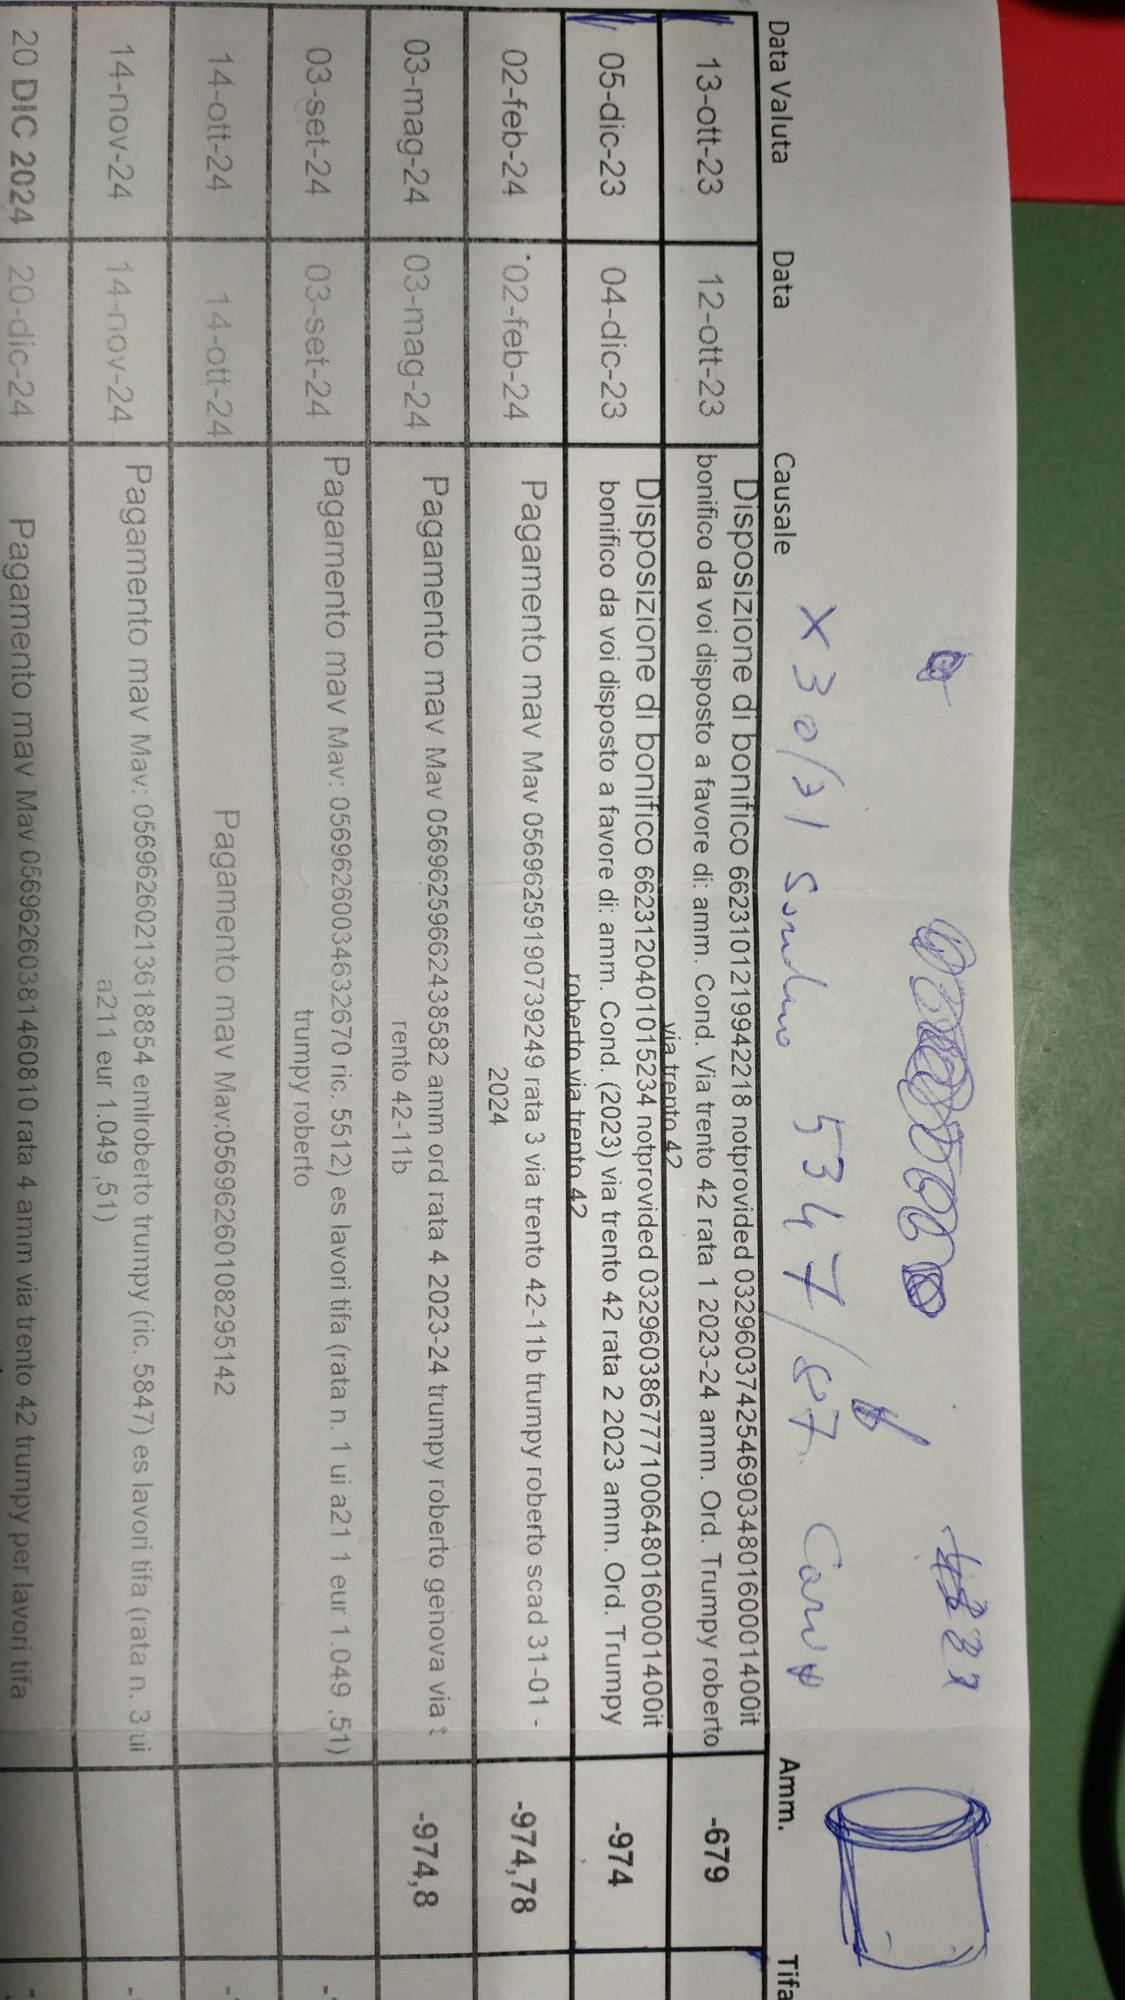 X 30/31 5347/87
Data Valuta Data Causale Amm. Tifa
13-ott-23 12-ott-23 Disposizione di bonifico 6623101219942218 notprovided 0329603742546903480160001400it
bonifico da voi disposto a favore di: amm. Cond. Via trento 42 rata 1 2023-24 amm. Ord. Trumpy roberto
via trento 42 -679
05-dic-23 04-dic-23 Disposizione di bonifico 66231204010152​34 notprovided 0329603867771006480160001400it
bonifico da voi disposto a favore di: amm. Cond. (2023) via trento 42 rata 2 2023 amm. Ord. Trumpy
roberto via trento 42 -974
02-feb-24 02-feb-24 Pagamento mav Mav 05696259190739249 rata 3 via trento 42-11b trumpy roberto scad 31-01 -
2024 -974,78
03-mag-24 03-mag-24 Pagamento mav Mav 05696259662438582 amm ord rata 4 2023-24 trumpy roberto genova via t
rento 42-11b -974,8
03-set-24 03-set-24 Pagamento mav Mav: 05696260034632670 ric. 5512) es lavori tifa (rata n. 1 ui a21 1 eur 1.049 ,51)
trumpy roberto
14-ott-24 14-ott-24 Pagamento mav Mav:05696260108295142
14-nov-24 14-nov-24 Pagamento mav Mav: 05696260213618854 emlroberto trumpy (ric. 5847) es lavori tifa (rata n. 3 ui
a211 eur 1.049 ,51)
20 DIC 2024 20-dic-24 Pagamento mav Mav 05696260381460810 rata 4 amm via trento 42 trumpy per lavori tifa